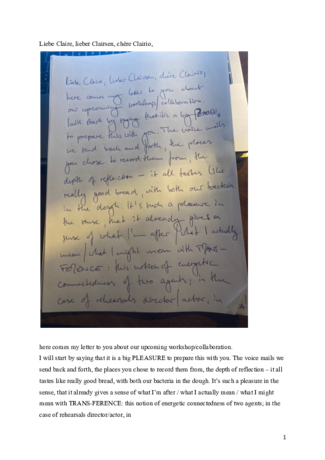 Liebe Claire, lieber Clairsen, chère Clairio,
Liebe Claire, lieber Clairsen, chère Clairio,
here comes my letter to you about
our upcoming workshop/collaboration.
I will start by saying that it is a big PLEASURE
to prepare this with you. The voice mails
we send back and forth, the places
you chose to record them from, the
depth of reflection – it all tastes like
really good bread, with both our bacteria
in the dough. It's such a pleasure in
the sense that it already gives a
sense of what I'm after / what I actually
mean / what I might mean with TRANS-
FERENCE: this notion of energetic
connectedness of two agents; in the
case of rehearsals director/actor, in
here comes my letter to you about our upcoming workshop/collaboration.
I will start by saying that it is a big PLEASURE to prepare this with you. The voice mails we
send back and forth, the places you chose to record them from, the depth of reflection – it all
tastes like really good bread, with both our bacteria in the dough. It's such a pleasure in the
sense, that it already gives a sense of what I'm after / what I actually mean / what I might
mean with TRANS-FERENCE: this notion of energetic connectedness of two agents; in the
case of rehearsals director/actor, in
1